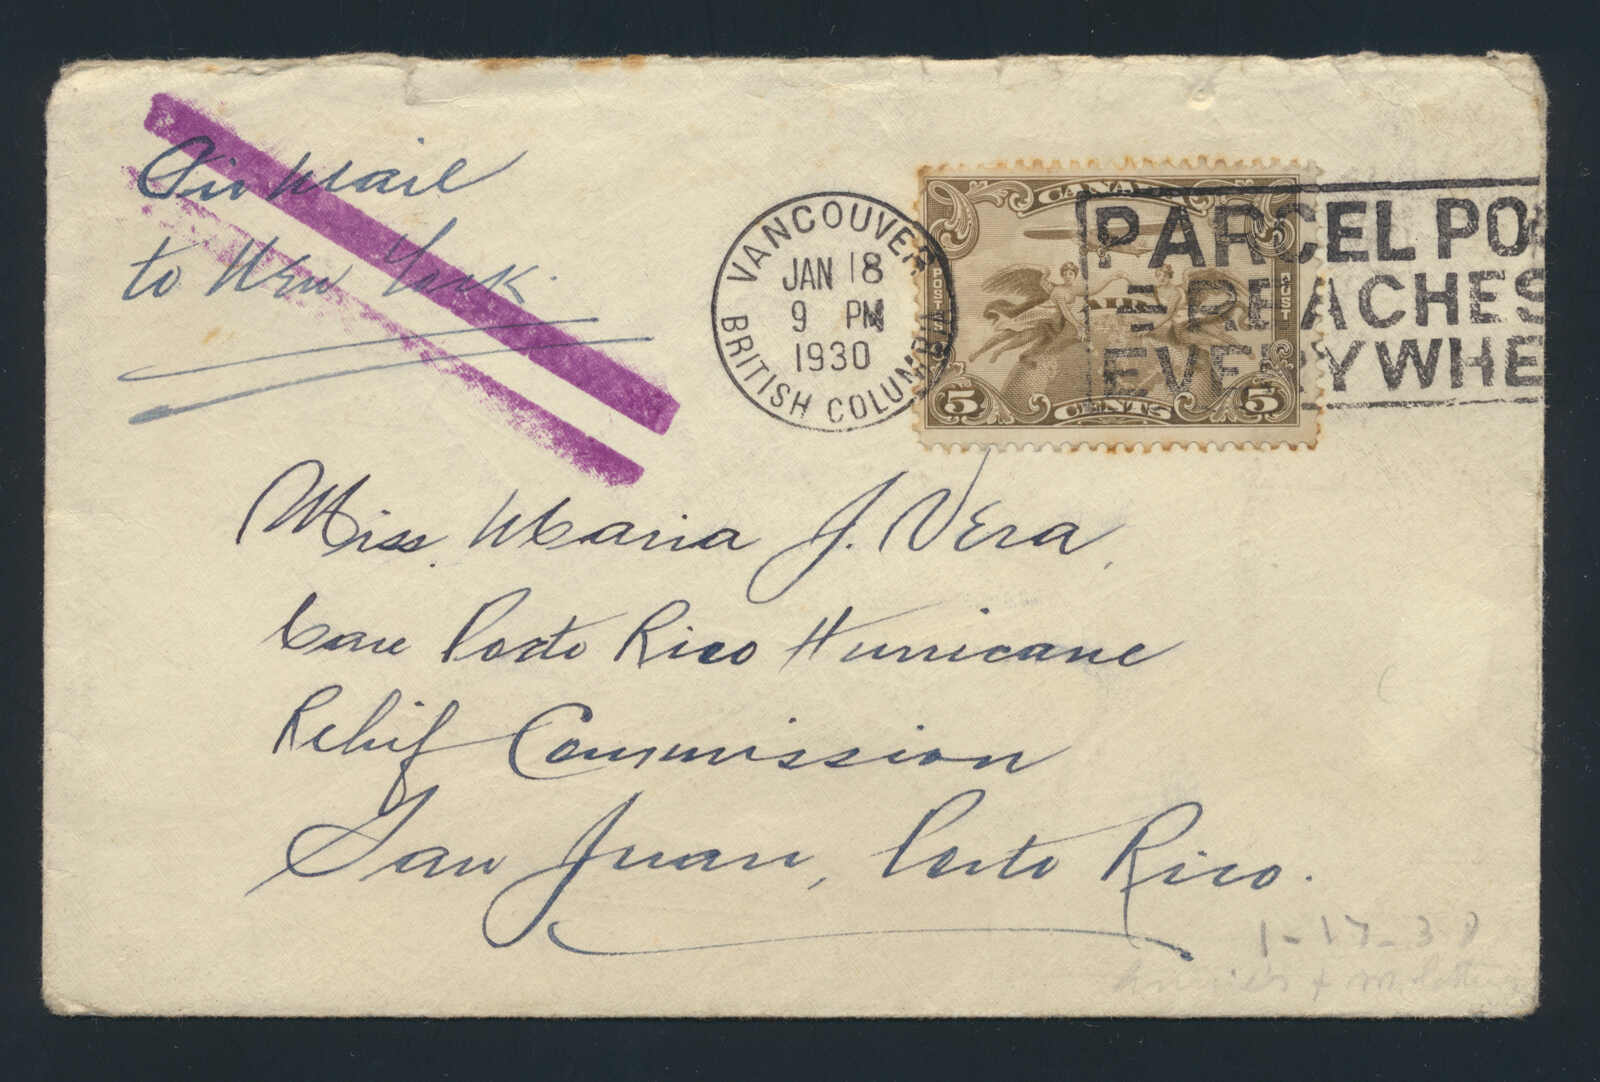 Air Mail
to New York.
VANCOUVER
JAN 18
9 PM
1930
BRITISH COLUMBIA
CANADA
POSTAGE
AIR
POSTES
5 CENTS 5
PARCEL PO
REACHES
EVERYWHE
Miss. Maria J. Vera,
Care Porto Rico Hurricane
Relief Commission
San Juan, Porto Rico.
1-17-30